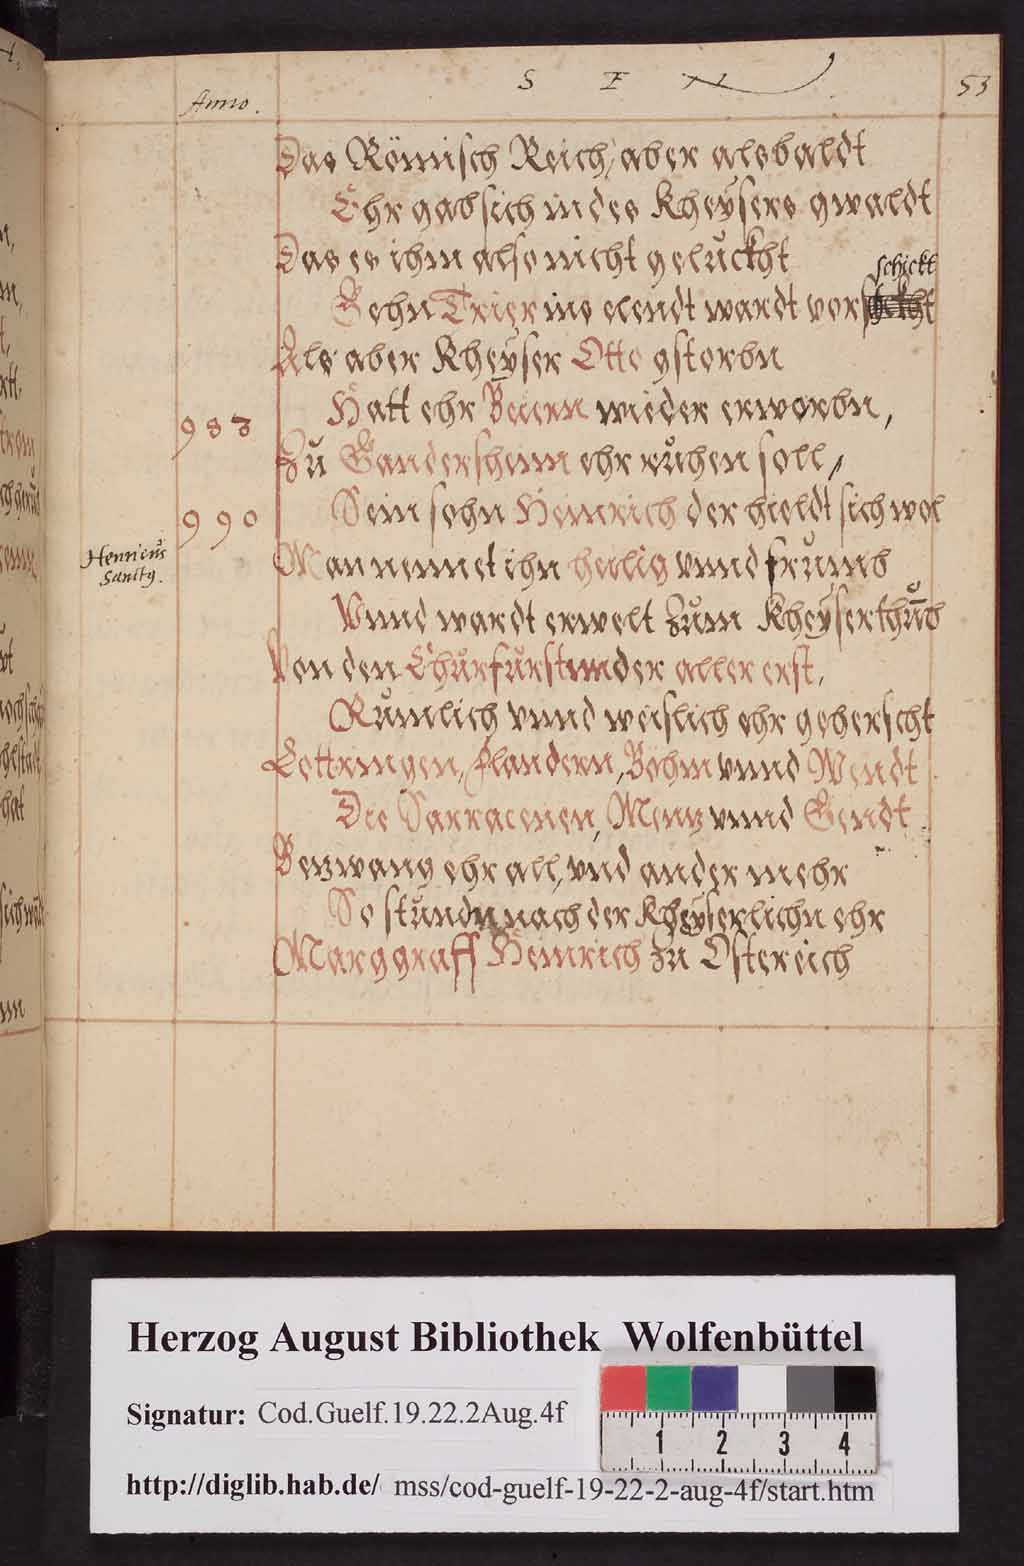 S E N
53
Anno.
Das Römisch Reich, aber alsbaldt
Ehr gab sich in des Kheÿsers gwaldt
Das es ihm also nicht gelückht
schickt
Gehn Trier ins elendt wardt vor
Als aber Kheÿser Otto gstorbn
Hatt ehr Beiern wieder erworbn,
983
Zu Gandersheim ehr růhen soll,
Sein sohn Heinrich der hieldt sich wol
990
Henricus
Sanctq.
Man nennet ihn heilig vnnd frumb
Vnnd wardt erwelt zum Kheÿserthu̅b
Von den Churfursten der aller erst,
Rumlich vnnd weislich ehr geherscht
Lottringen, Flandern, Bohm vnnd Wendt
Die Sarracenen, Menz vnnd Gendt
Bezwang ehr all, vnd ander mehr
So stunden nach der Kheÿserlichn ehr
Marggraff Heinrich zu Ostereich
Herzog August Bibliothek Wolfenbüttel
Signatur: Cod.Guelf.19.22.2Aug.4f
1 2 3 4
http://diglib.hab.de/ mss/cod-guelf-19-22-2-aug-4f/start.htm